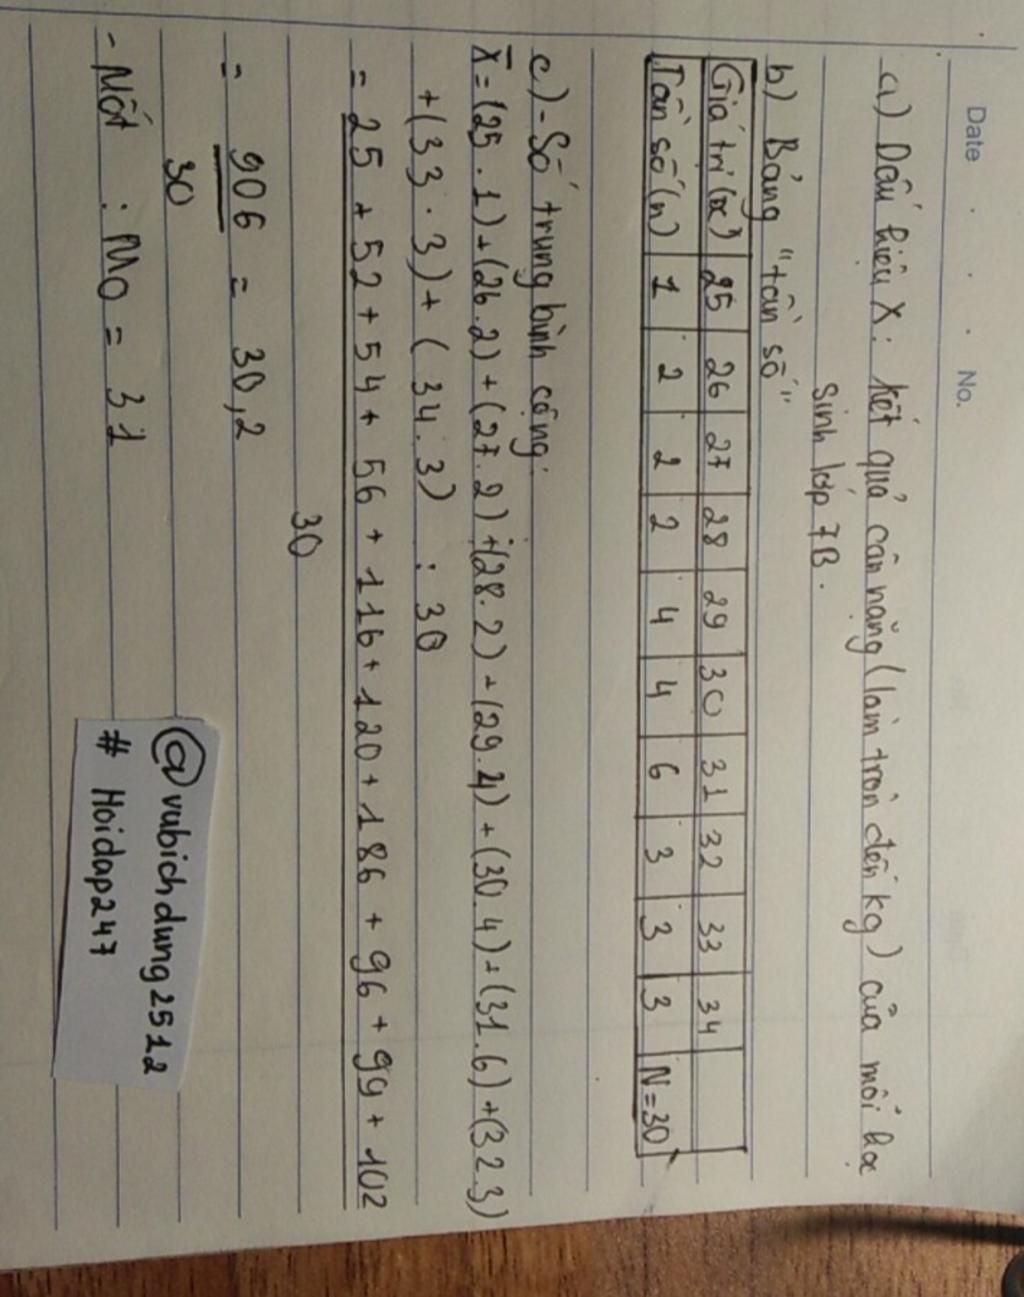 Date No.
a) Dấu hiệu X: kết quả cân nặng (làm tròn đến kg) của mỗi học
sinh lớp 7B.
b) Bảng "tần số"
Giá trị (x) 25 26 27 28 29 30 31 32 33 34
Tần số (n) 1 2 2 2 4 4 6 3 3 3 N=30
c) - Số trung bình cộng:
X̄ = (25 . 1) + (26. 2) + (27. 2) + (28. 2) + (29. 4) + (30. 4) + (31. 6) + (32 3)
+ (33 . 3) + (34. 3) : 30
= 25 + 52 + 54 + 56 + 116 + 120 + 186 + 96 + 99 + 102
30
= 906 = 30,2
30
- Mốt : M0 = 31
@vubichdung2512
# Hoidap247